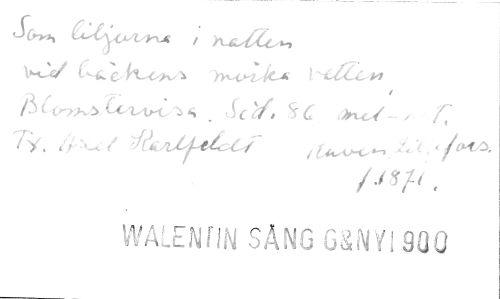 Som liljorna i natten
vid bäckens mörka vatten,
Blomstervisa. Sid. 86 mel-not.
Tx. Axel Karlfeldt Ruben Liljefors.
f. 1871.
WALENTIN SÅNG G&NYI 900